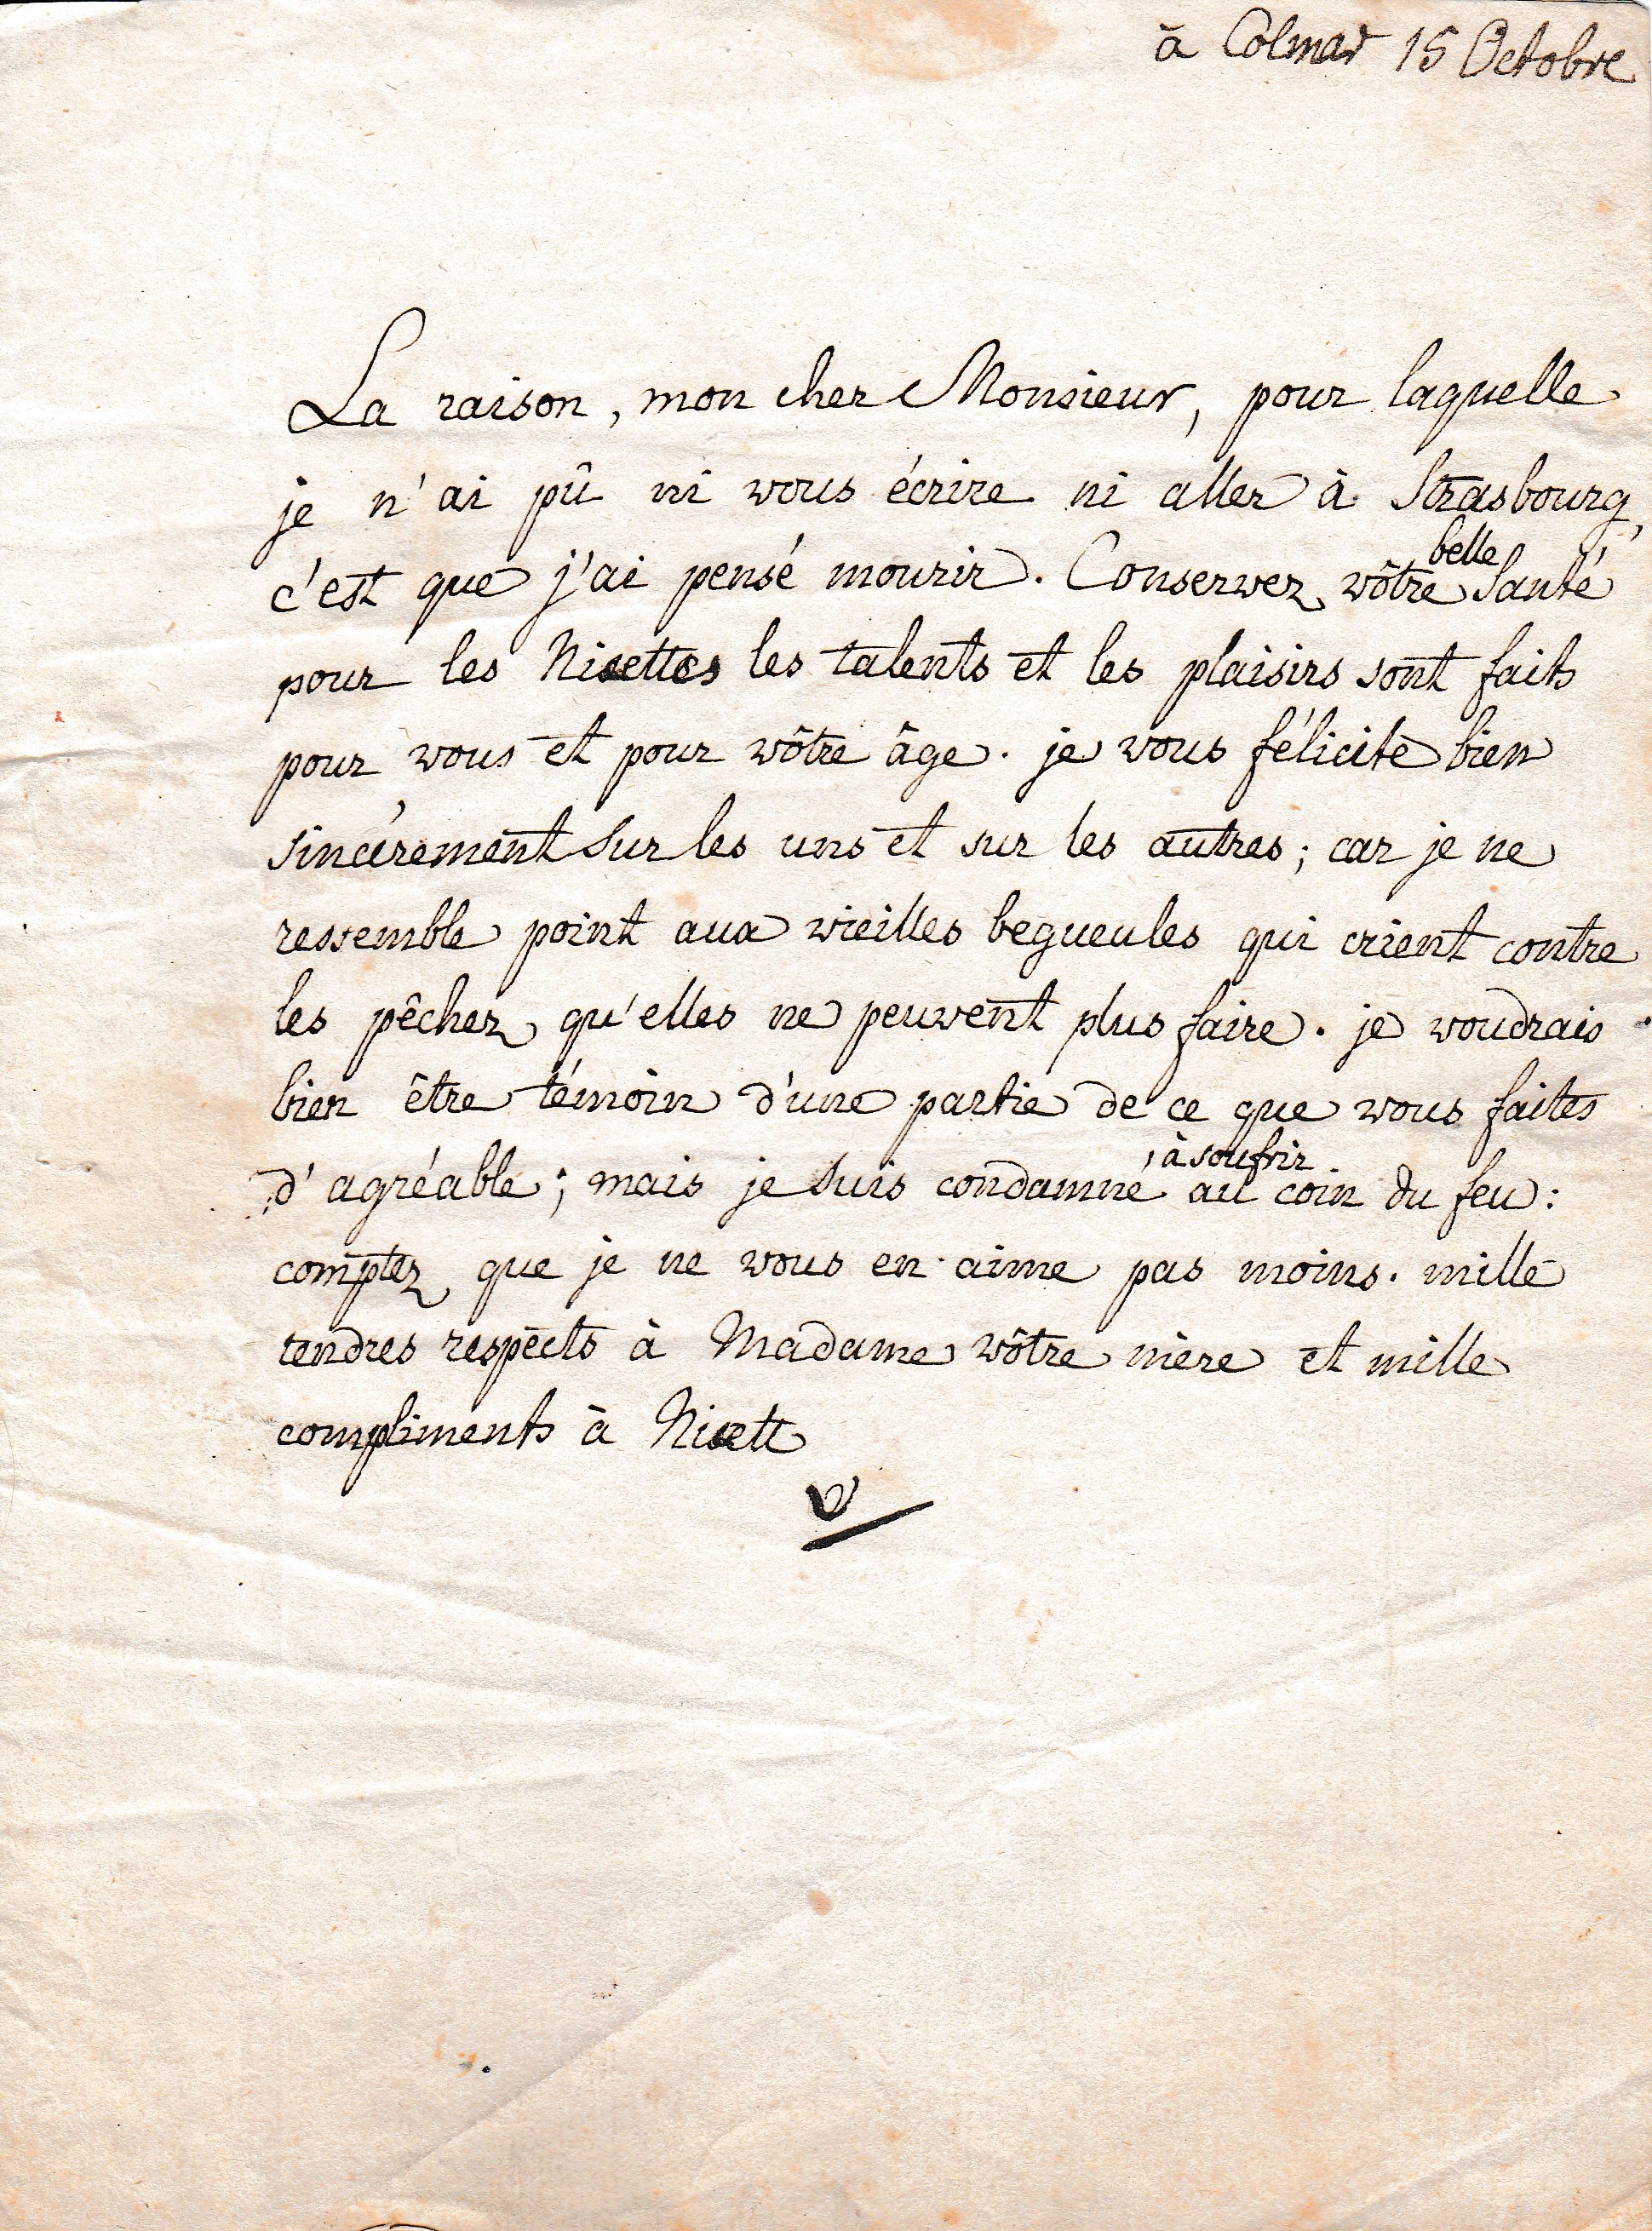 à Colmar 15 Octobre
La raison, mon cher Monsieur, pour laquelle
je n'ai pû ni vous écrire ni aller à Strasbourg,
belle
c'est que j'ai pensé mourir. Conservez vôtre Santé
pour les Nisettes les talents et les plaisirs sont faits
pour vous et pour vôtre âge. je vous félicite bien
sincérement sur les uns et sur les autres; car je ne
ressemble point aux vieilles begueules qui crient contre
les pêchez qu'elles ne peuvent plus faire. je voudrais
bien être témoin d'une partie de ce que vous faites
à soufrir
d'agréable; mais je suis condamné au coin du feu:
comptez que je ne vous en aime pas moins. mille
tendres respects à Madame vôtre mère et mille
compliments à Nisett
V